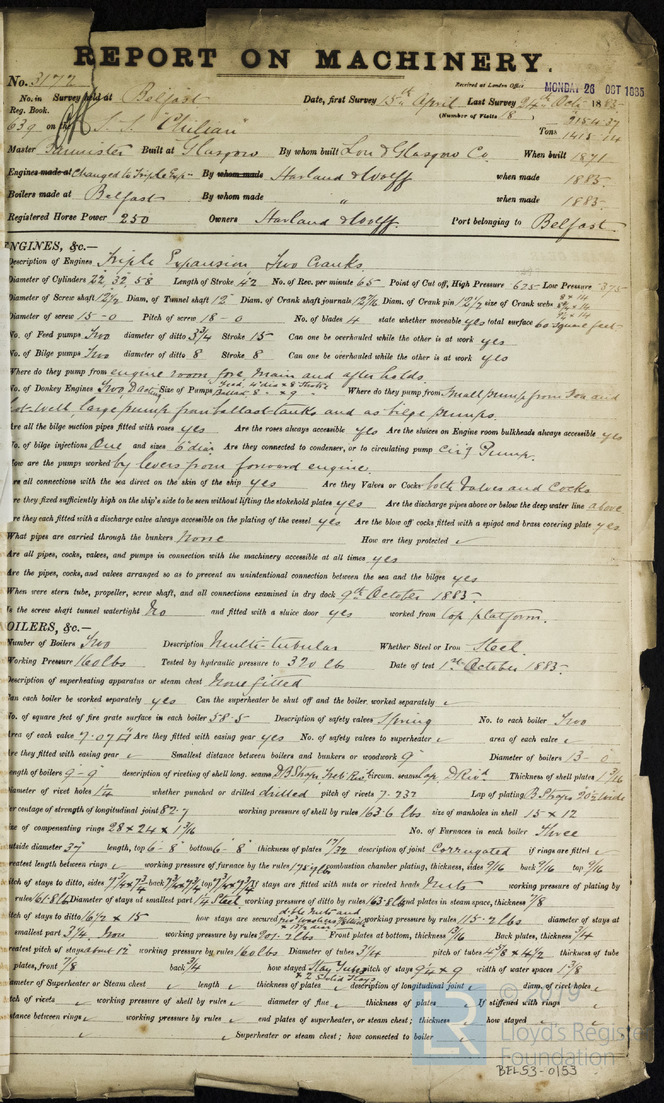 REPORT ON MACHINERY.
No. 3172 Received at London Office MONDAY 26 OCT 1885
No. in Survey held at Belfast Date, first Survey 15th April Last Survey 24th Octr 1885
Reg. Book. (Number of Visits 18)
639 on the S. S. "Chilian" Tons
Master Bannister Built at Glasgow By whom built Lon & Glasgow Co. When built 1871
Engines made at Changed to Triple Exp By whom made Harland & Wolff when made 1885.
Boilers made at Belfast By whom made " when made 1885.
Registered Horse Power 250 Owners Harland & Wolff. Port belonging to Belfast.
ENGINES, &c.—
Description of Engines Triple Expansion Two Cranks
Diameter of Cylinders 22, 32, 58 Length of Stroke 42 No. of Rec. per minute 65 Point of Cut off, High Pressure .625 Low Pressure .375
Diameter of Screw shaft 12 1/2 Diam. of Tunnel shaft 12" Diam. of Crank shaft journals 12 7/16 Diam. of Crank pin 12 1/2 size of Crank webs
Diameter of screw 15-0 Pitch of screw 18-0 No. of blades 4 state whether moveable yes total surface 60 square feet
No. of Feed pumps Two diameter of ditto 3 3/4 Stroke 15 Can one be overhauled while the other is at work yes
No. of Bilge pumps Two diameter of ditto 8 Stroke 8 Can one be overhauled while the other is at work yes
Where do they pump from engine room fore, main and after holds.
No. of Donkey Engines Two, D acting Size of Pumps Feed 4" dia x 8 Stroke Where do they pump from Small pump from Sea and
hot-well, large pump from ballast tanks and as bilge pumps.
Are all the bilge suction pipes fitted with roses yes Are the roses always accessible yes Are the sluices on Engine room bulkheads always accessible yes
No. of bilge injections One and sizes 6" diar Are they connected to condenser, or to circulating pump Cirg Pump.
How are the pumps worked by levers from forward engine.
Are all connections with the sea direct on the skin of the ship yes Are they Valves or Cocks both Valves and Cocks
Are they fixed sufficiently high on the ship's side to be seen without lifting the stokehold plates yes Are the discharge pipes above or below the deep water line above
Are they each fitted with a discharge valve always accessible on the plating of the vessel yes Are the blow off cocks fitted with a spigot and brass covering plate yes
What pipes are carried through the bunkers None How are they protected ✓
Are all pipes, cocks, valves, and pumps in connection with the machinery accessible at all times yes
Are the pipes, cocks, and valves arranged so as to prevent an unintentional connection between the sea and the bilges yes
When were stern tube, propeller, screw shaft, and all connections examined in dry dock 9th October 1885.
Is the screw shaft tunnel watertight No and fitted with a sluice door yes worked from top platform.
BOILERS, &c.—
Number of Boilers Two Description Multi-tubular Whether Steel or Iron Steel.
Working Pressure 160 lbs Tested by hydraulic pressure to 320 lb Date of test 1st October 1885.
Description of superheating apparatus or steam chest None fitted
Can each boiler be worked separately yes Can the superheater be shut off and the boiler worked separately ✓
No. of square feet of fire grate surface in each boiler 58.5 Description of safety valves Spring No. to each boiler Two
Area of each valve 7.07 □" Are they fitted with easing gear yes No. of safety valves to superheater ✓ area of each valve ✓
Are they fitted with easing gear ✓ Smallest distance between boilers and bunkers or woodwork 9" Diameter of boilers 13-0
Length of boilers 9-9 description of riveting of shell long. seams D.B. Straps, Treb. Rivd circum. seams lap, D Rivd Thickness of shell plates 1 3/16
Diameter of rivet holes 1 1/4 whether punched or drilled drilled pitch of rivets 7.737 Lap of plating B. Straps 20 1/2 wide
Per centage of strength of longitudinal joint 82.7 working pressure of shell by rules 163.6 lbs size of manholes in shell 15 x 12
Size of compensating rings 28 x 24 x 1 3/16 No. of Furnaces in each boiler Three
Outside diameter 37" length, top 6-8 bottom 6-8" thickness of plates 17/32 description of joint Corrugated if rings are fitted ✓
Greatest length between rings ✓ working pressure of furnace by the rules combustion chamber plating, thickness, sides 9/16 back 9/16 top 9/16
Pitch of stays to ditto, sides 7 3/4 x 7 3/4 back 7 3/4 x 7 3/4 top If stays are fitted with nuts or riveted heads Nuts working pressure of plating by
rules 161.8 lb Diameter of stays at smallest part 1 1/4 Steel working pressure of ditto by rules 163.8 lb end plates in steam space, thickness 7/8
Pitch of stays to ditto 16 1/2 x 15 how stays are secured dble nuts and working pressure by rules 115.2 lbs diameter of stays at
smallest part 3 1/4 Iron working pressure by rules 201.2 lbs Front plates at bottom, thickness 13/16 Back plates, thickness 3/4
Greatest pitch of stays about 12" working pressure by rules 160 lbs Diameter of tubes 3 1/4 pitch of tubes 4 5/8 x 4 1/2 thickness of tube
plates, front 7/8 back 3/4 how stayed Stay Tubes & 2 Solid Stays pitch of stays 9 1/4 x 9 width of water spaces 1 3/8
Diameter of Superheater or Steam chest ✓ length ✓ thickness of plates ✓ description of longitudinal joint ✓ diam. of rivet holes ✓
Pitch of rivets ✓ working pressure of shell by rules ✓ diameter of flue ✓ thickness of plates ✓ If stiffened with rings ✓
Distance between rings ✓ working pressure by rules ✓ end plates of superheater, or steam chest; thickness ✓ how stayed ✓
Superheater or steam chest; how connected to boiler ✓
© 2019
Lloyd's Register
Foundation
BEL53-0153